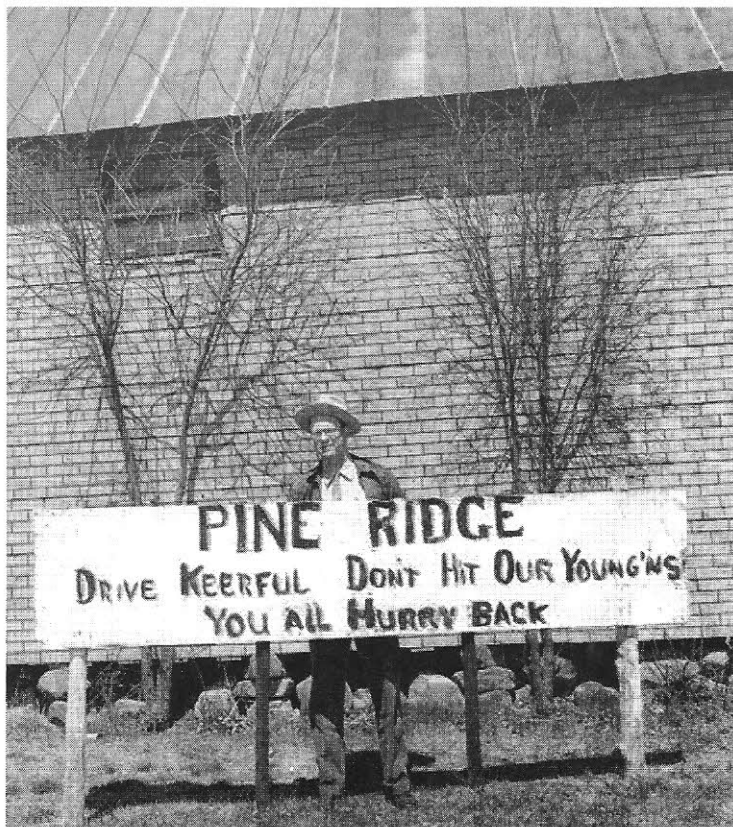 PINE RIDGE
DRIVE KEERFUL DON'T HIT OUR YOUNG'NS
YOU ALL HURRY BACK